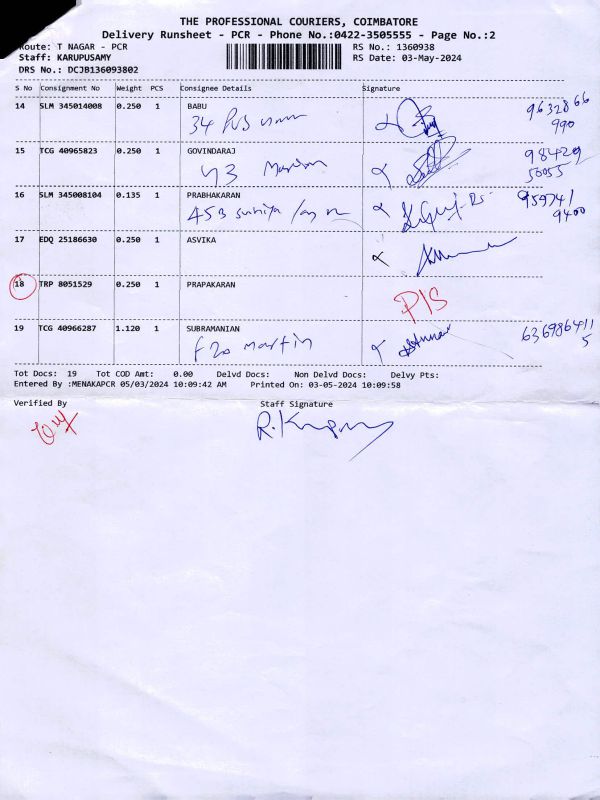 THE PROFESSIONAL COURIERS, COIMBATORE
Delivery Runsheet - PCR - Phone No.:0422-3505555 - Page No.:2
Route: T NAGAR - PCR RS No.: 1360938
Staff: KARUPUSAMY RS Date: 03-May-2024
DRS No.: DCJB136093802
S No Consignment No Weight PCS Consignee Details Signature
14 SLM 345014008 0.250 1 BABU 9632866
34 990
15 TCG 40965823 0.250 1 GOVINDARAJ 98429
43 50055
16 SLM 345008104 0.135 1 PRABHAKARAN 959741
45B 9400
17 EDQ 25186630 0.250 1 ASVIKA
18 TRP 8051529 0.250 1 PRAPAKARAN
P/S
19 TCG 40966287 1.120 1 SUBRAMANIAN 636986411
F20 Martin 5
Tot Docs: 19 Tot COD Amt: 0.00 Delvd Docs: Non Delvd Docs: Delvy Pts:
Entered By :MENAKAPCR 05/03/2024 10:09:42 AM Printed On: 03-05-2024 10:09:58
Verified By Staff Signature